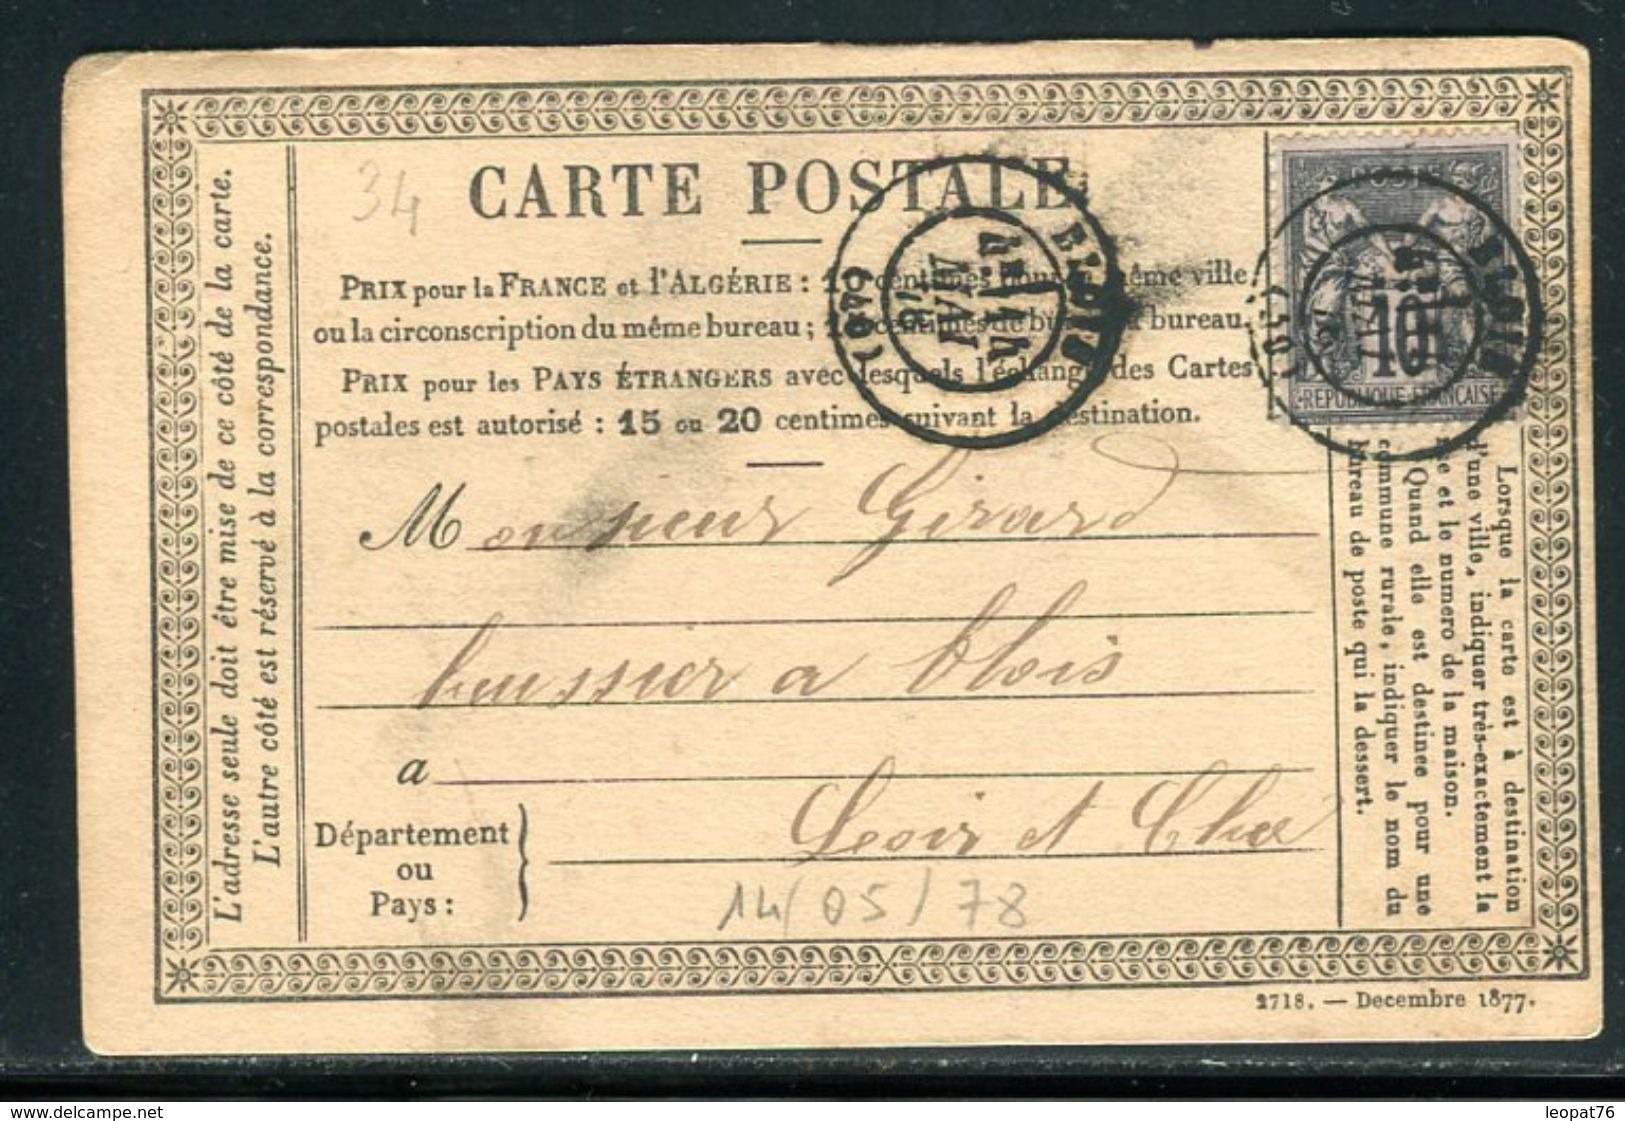 34
CARTE POSTALE
PRIX pour la FRANCE et l'ALGÉRIE : 10 centimes pour la même ville
ou la circonscription du même bureau ; 15 centimes de bureau à bureau.
PRIX pour les PAYS ÉTRANGERS avec lesquels l'échange des Cartes
postales est autorisé : 15 ou 20 centimes suivant la destination.
BLOIS
MAI
78
(40)
10
REPUBLIQUE FRANÇAISE
BLOIS
Monsieur Girard
huissier a blois
a
Département
ou
Pays :
Loir et Cher
14/05/78
L'adresse seule doit être mise de ce côté de la carte.
L'autre côté est réservé à la correspondance.
Lorsque la carte est à destination
d'une ville, indiquer très-exactement la
rue et le numero de la maison.
Quand elle est destinee pour une
commune rurale, indiquer le nom du
bureau de poste qui la dessert.
2718. — Decembre 1877.
Mentions légales du site sur www.delcampe.net
leopat76